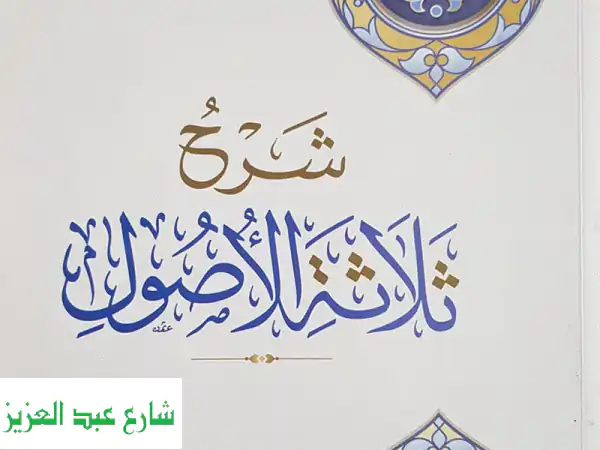 شَرْحُ
ثَلَاثَةِ الْأُصُولِ
شارع عبد العزيز